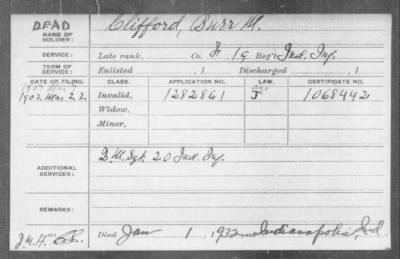 DEAD
NAME OF SOLDIER: Clifford, Burr M.
SERVICE: Late rank, Co. F, 19 Reg't Ind. Inf.
TERM OF SERVICE: Enlisted , 1 Discharged , 1
DATE OF FILING. CLASS. APPLICATION NO. LAW. CERTIFICATE NO.
1902 Mar 22 Invalid, 1282861 J 1068442
Widow,
Minor,
ADDITIONAL SERVICES: Q.M. Sgt. 20 Ind. Inf.
REMARKS:
J.M.H. Died Jan 1, 1932 Indianapolis, Ind.